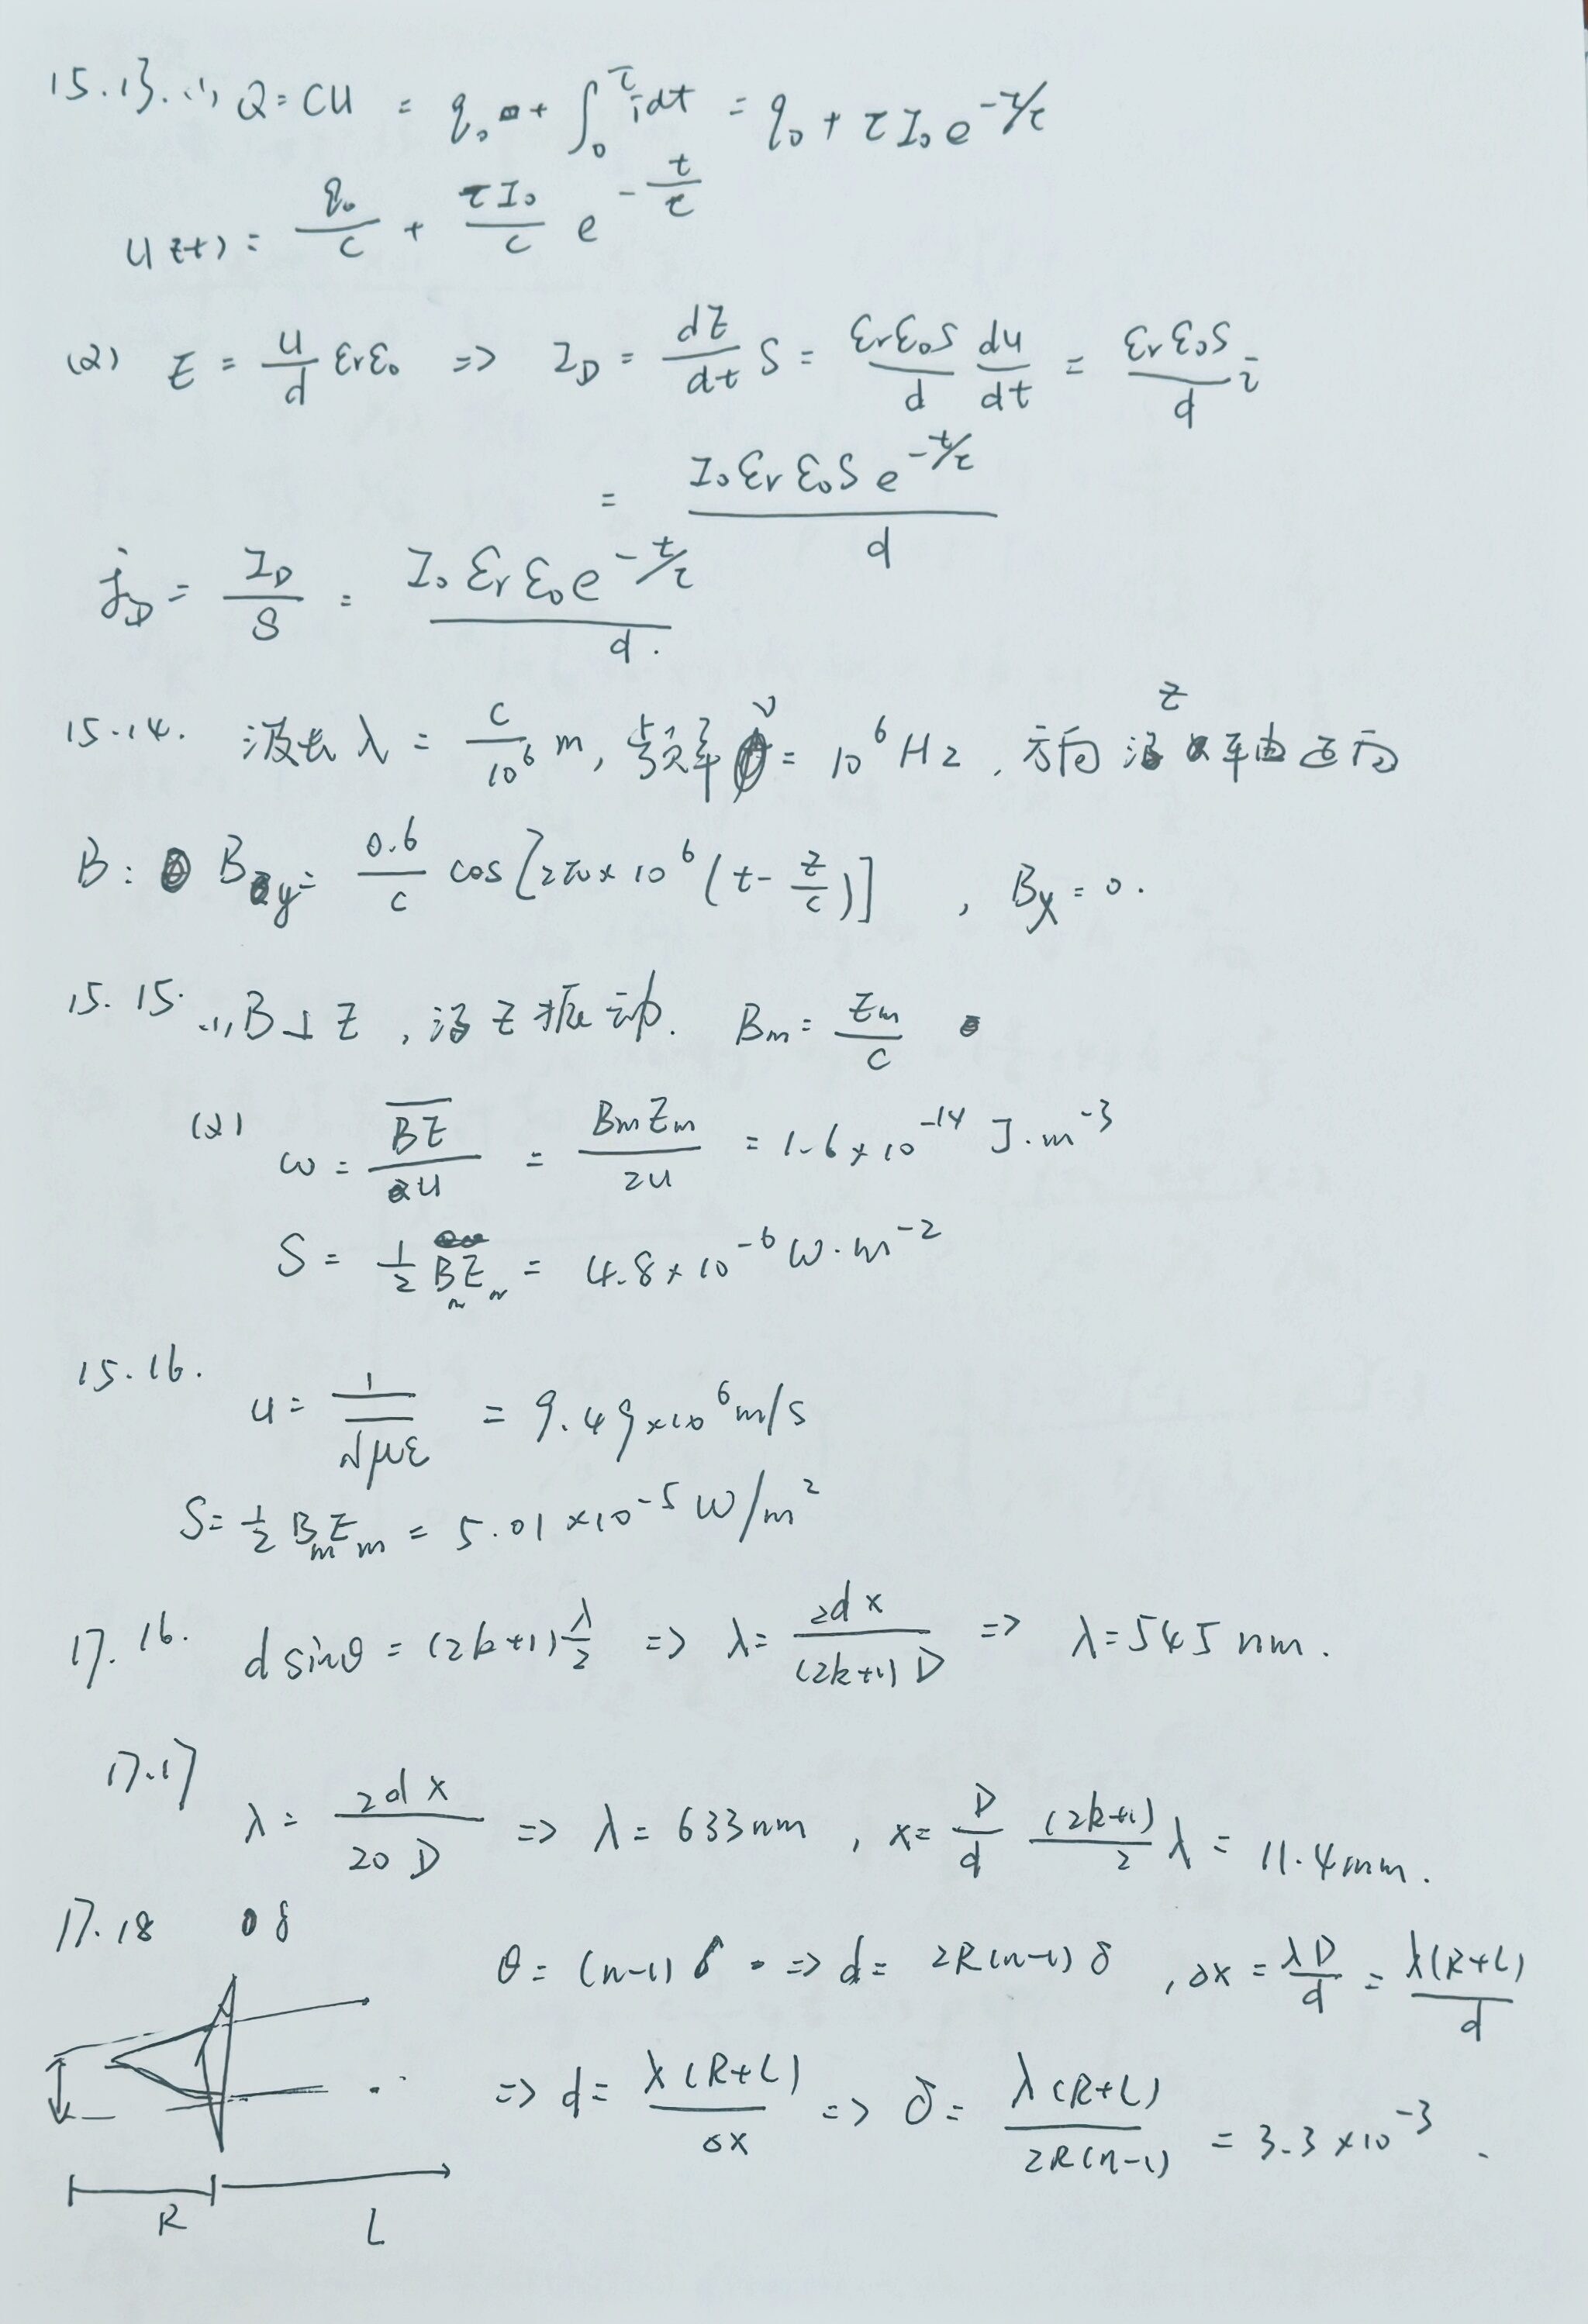 15.13. (1) Q = CU = q₀ + ∫₀^τ i dt = q₀ + τ I₀ e^(-τ/τ)
U(t) = q₀/C + (τI₀/C) e^(-t/τ)
(2) E = (U/d) εrε₀ => I_D = (dE/dt) S = (εrε₀S/d) (du/dt) = (εrε₀S/d) i
= I₀ εr ε₀ S e^(-t/τ) / d
j_D = I_D/S = I₀ εr ε₀ e^(-t/τ) / d.
15.14. 波长 λ = c/10⁶ m, 频率 ν = 10⁶ Hz, 方向沿 z
B: By = (0.6/c) cos[2π×10⁶(t - z/c)], Bx = 0.
15.15. (1) B⊥E, 沿 z 振动. Bm = Em/c
(2) ω = B̅E̅/2u = BmEm/2u = 1.6×10⁻¹⁴ J·m⁻³
S = 1/2 BmEm = 4.8×10⁻⁶ W·m⁻²
15.16. u = 1/√με = 9.49×10⁶ m/s
S = 1/2 BmEm = 5.01×10⁻⁵ W/m²
17.16. d sinθ = (2k+1) λ/2 => λ = 2dx/((2k+1)D) => λ = 545 nm.
17.17 λ = 2dx/(20D) => λ = 633nm, x = (D/d) ((2k+1)/2) λ = 11.4mm.
17.18 δ
θ = (n-1)δ => d = 2R(n-1)δ, Δx = λD/d = λ(R+L)/d
=> d = λ(R+L)/Δx => δ = λ(R+L)/(2R(n-1)) = 3.3×10⁻³.
R
L